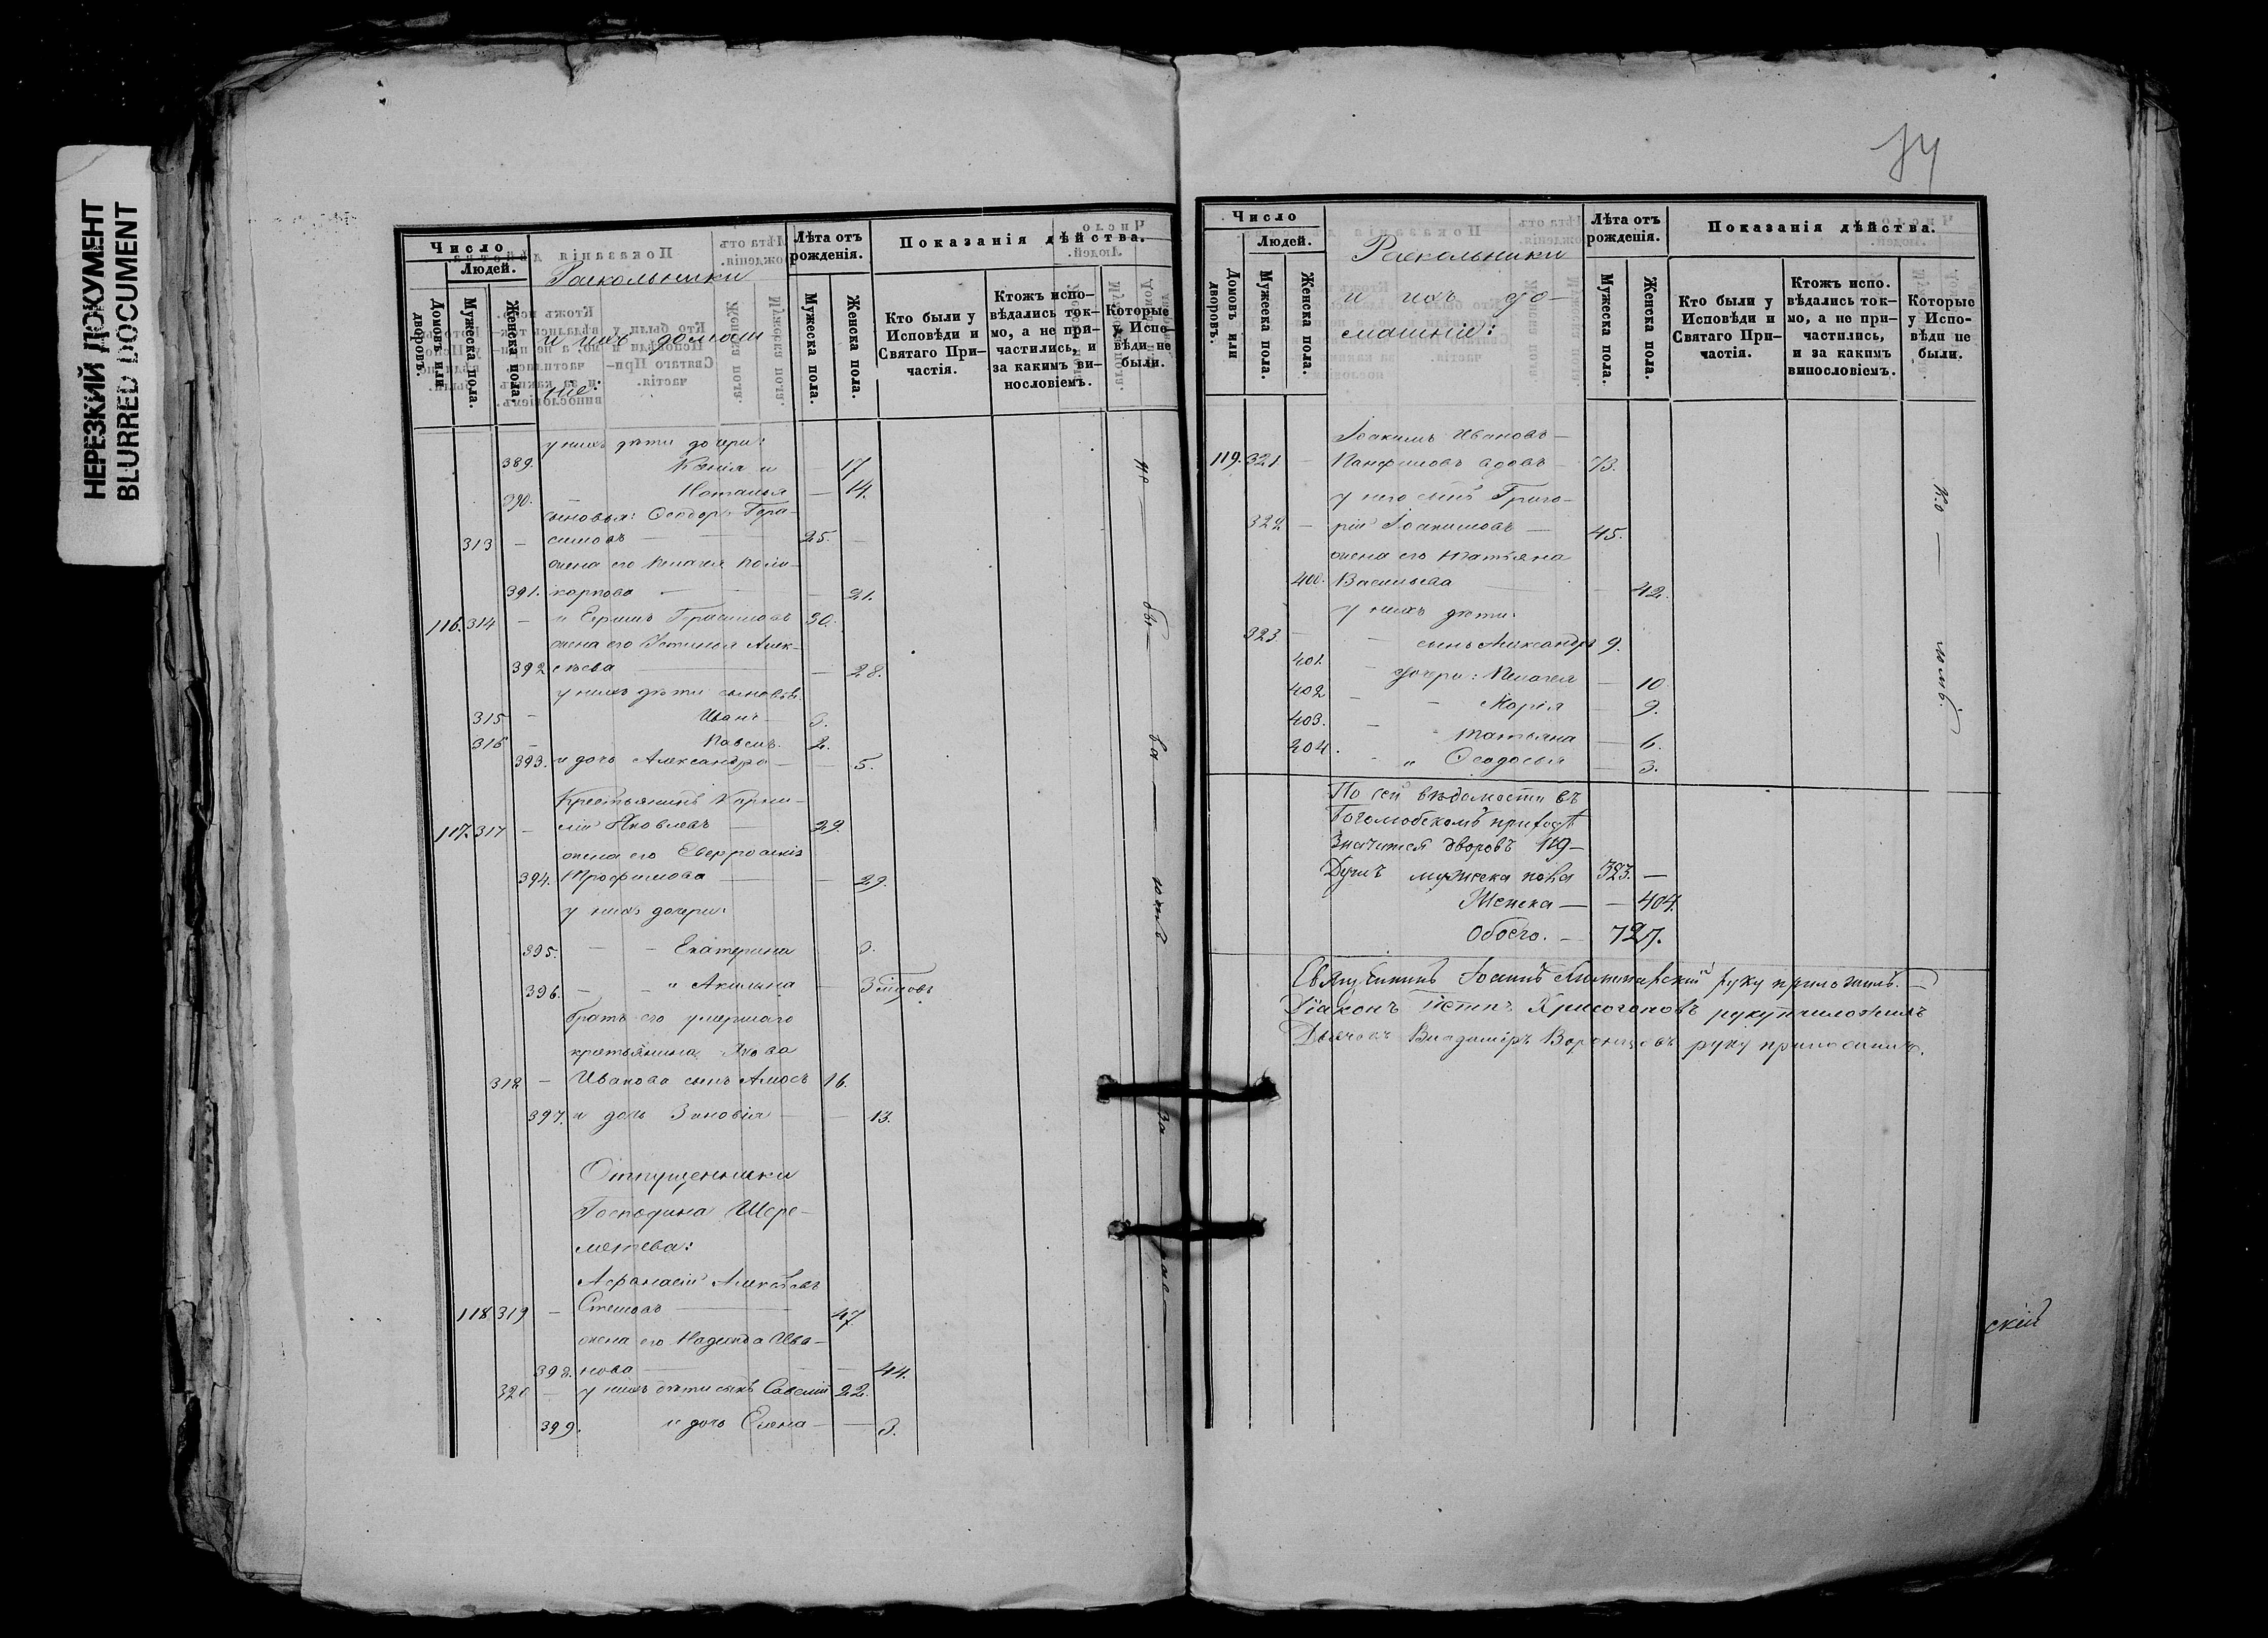 НЕРЕЗКИЙ ДОКУМЕНТ
BLURRED DOCUMENT
Число
Людей.
Домовъ или дворовъ.
Мужеска пола.
Женска пола.
Раскольники
и ихъ домаш
ніе:
Лѣта отъ рожденія.
Мужеска пола.
Женска пола.
Показанія дѣйства.
Кто были у Исповѣди и Святаго При-
частія.
Ктожъ испо-
вѣдались ток-
мо, а не при-
частились, и
за какимъ ви-
нословіемъ.
Которые
у Испо-
вѣди не
были.
у нихъ дѣти дочери:
389. Ксенія и 17
390. Наталья — 14.
сыновья: Ѳеодоръ Гера-
313 — симовъ — 25. —
жена его Пелагея Поли-
391. карпова — — 21.
116. 314 — и Ефимъ Герасимовъ 30.
жена его Устинья Алек-
392 сѣева — — 28.
у нихъ дѣти сыновья
315 — Иванъ — 3.
316 — Павелъ. 2.
393. и дочь Александра — — 5.
Крестьянинъ Корни-
117. 317 — лій Яковлевъ — 29.
жена его Евфросинія
394. Трофимова — — 29.
у нихъ дочери:
395. — — Екатерина 3.
396. — — " Акилина — 3 мѣсцовъ
братъ его умершаго
крестьянина Якова
318 — Иванова сынъ Амосъ 16.
397. и дочь Зиновія — — 13.
Отпущенники
Господина Шере-
метева:
Афанасій Алексѣевъ
118 319 — Стешовъ — 47.
жена его Надежда Ива-
398. нова — — 44.
320 — у нихъ дѣти сынъ Савелій 22.
399. и дочь Елена — — 3.
Число
Людей.
Домовъ или дворовъ.
Мужеска пола.
Женска пола.
Раскольники
и ихъ до-
машніе:
Лѣта отъ рожденія.
Мужеска пола.
Женска пола.
Показанія дѣйства.
Кто были у
Исповѣди и
Святаго При-
частія.
Ктожъ испо.
вѣдались ток-
мо, а не при-
частились,
и за какимъ
винословіемъ.
Которые
у Испо-
вѣди не
были.
Іоакимъ Ивановъ —
119. 321. — Панфиловъ вдовъ — 73.
у него сынъ Григо-
322 — рій Іоакимовъ — 45.
жена его Татьяна
400. Васильева — — 42.
у нихъ дѣти:
323. — — сынъ Александръ 9.
401. — дочери: Пелагея — 10.
402 — — Марія — 9.
403. — " Татьяна — 6.
204. — " Ѳеодосья — 3.
По сей вѣдомости въ
Боголюбскомъ приходѣ
Значится дворовъ 119 —
Душъ мужеска пола 323. —
Женска — — 404.
Обоего. — 727.
Священникъ Іоаннъ руку приложилъ. —
Діаконъ Петръ Хрисогоновъ руку приложилъ
Дьячекъ Владиміръ Воронцовъ руку приложилъ.
скій